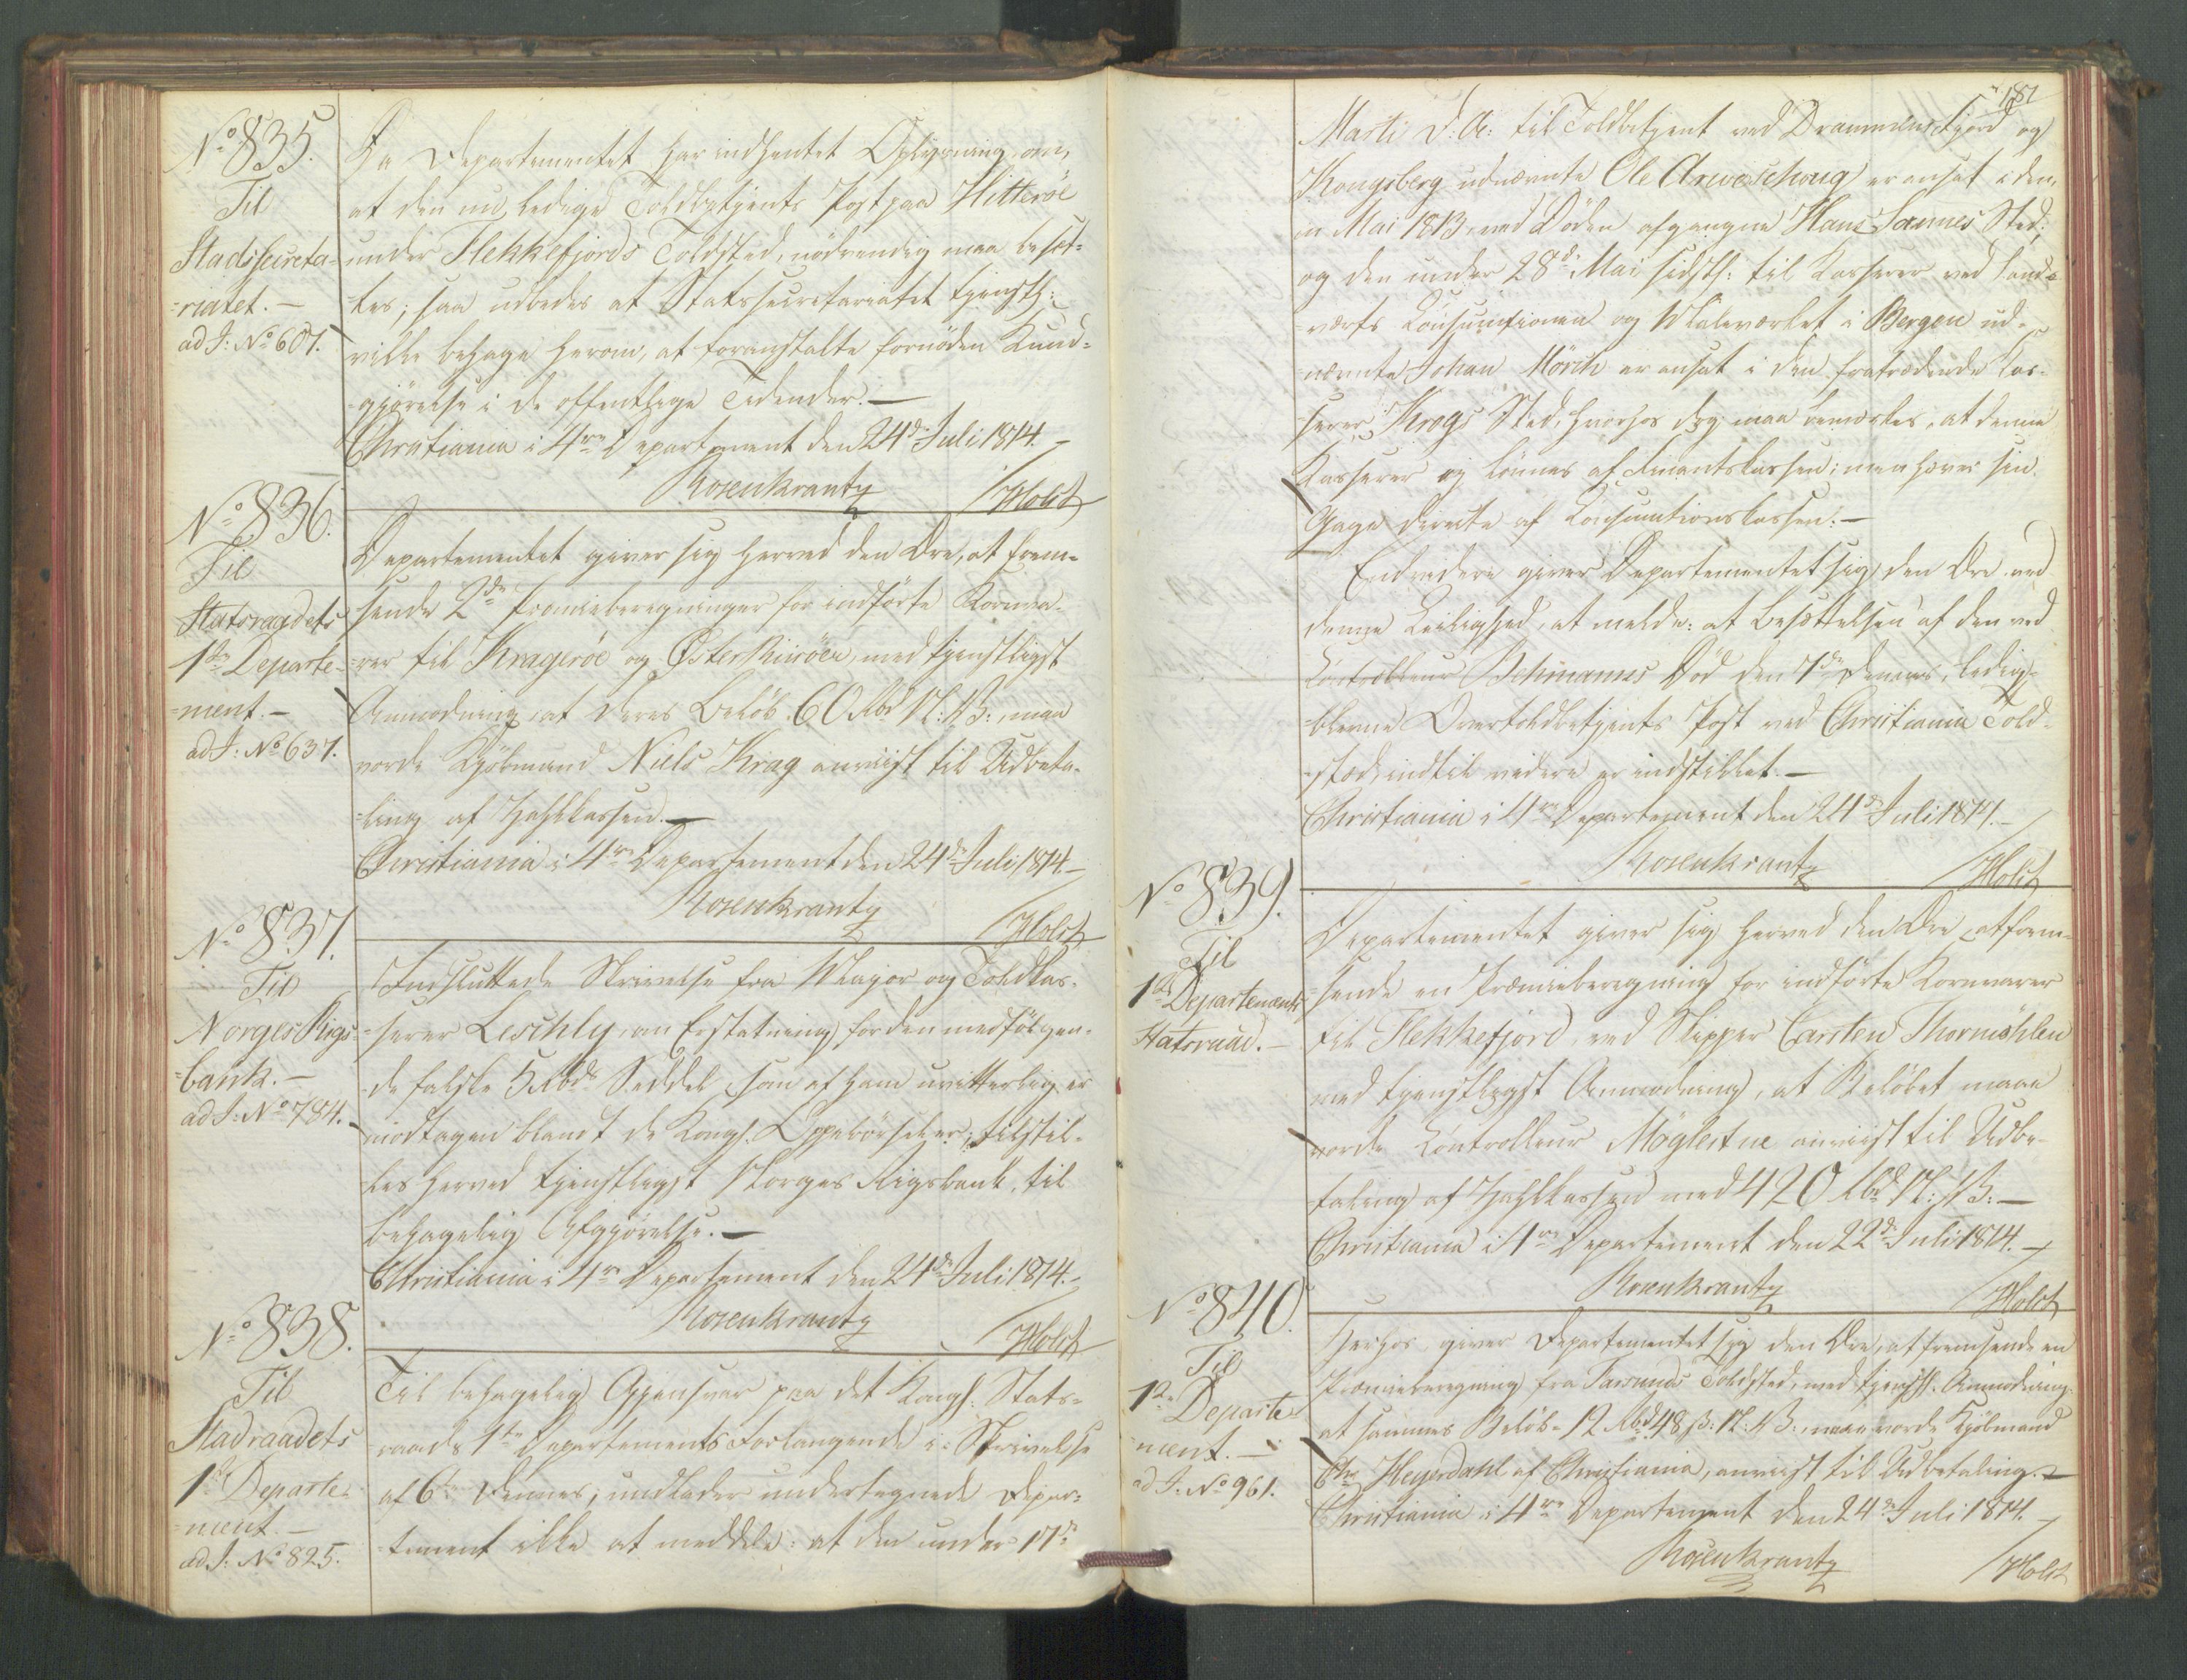 No 835.
Til
Stadssecreta-
riatet.-
ad J: No 607.
Da Departementet har indhentet Oplysning om,
at den nu ledige Toldbetjents Post paa Hitteröe
under Flekkefjords Toldsted, nödvendig maa besæt-
tes; saa udbedes at Statssecretariatet tjenstl:
ville behage herom, at foranstalte fornöden Kund-
gjörelse i de offentlige Tidender.-
Christiania i 4re Departement den 24de Juli 1814.-
Rosenkrantz
/Holst
No 836.
Til
Statsraadets
1ste Departe-
ment.-
ad J: No 637.
Departementet giver sig herved den Ære, at frem-
sende 2de Præmieberegninger for indförte Kornva-
rer til Krageröe og Østerriisöer, med tjenstligst
Anmodning, at deres Belöb 60 Rbd N: V:, maa
vorde Kjöbmand Niels Krag anviist til Udbeta-
ling af Zahlkassen.-
Christiania i 4re Departement den 24de Juli 1814.-
Rosenkrantz
/Holst
No 837.
Til
Norges Rigs-
bank.-
ad J: No 784.
Indsluttede Skrivelse fra Major og Toldkas-
serer Leschly, om Erstatning for den medfölgen-
de falske 5 Rbds Seddel, som af ham uvitterlig er
modtagen blandt de Kongl. Oppebörseler, tilstil-
les herved tjenstligst Norges Rigsbank, til
behagelig Afgjörelse.-
Christiania i 4re Departement den 24de Juli 1814.-
Rosenkrantz
/Holst
No 838.
Til
Stadraadets
1ste Departe-
ment.-
ad J: No 825.
Til behagelig Gjensvar paa det Kongl: Stats-
raads 1ste Departements Forlangende i Skrivelse
af 6te dennes, undlader undertegnede Depar-
tement ikke at meddele: at den under 17de
181
Marti d: A: til Toldbetjent ved Drammensfjord og
Kongsberg udnævnte Ole Arveschoug er ansat i den,
in Mai 1813, ved Döden afgangne Hans Sannes Sted;
og den under 28de Mai sidstl: til Kasserer ved Land-
værts Consumtionen og Maleværket i Bergen ud-
nævnte Johan Mörch er ansat i den fratrædende Cas-
serer Krogs Sted, hvorhos dog maa bemærkes, at denne
Kasserer ej lönnes af Finantskassen; men hæver sin
Gage directe af Consumtionskassen.-
Endvidere giver Departementet sig den Ære ved
denne Leilighed, at melde: at Besættelsen af den ved
Controlleur Behmannes Död den 7de dennes, ledig-
blevne Overtoldbetjents Post ved Christiania Told-
sted, indtil videre er indstillet.-
Christiania i 4re Departement den 24de Juli 1814.-
Rosenkrantz
/Holst
No 839.
Til
1ste Departements
Statsraad.-
Departementet giver sig herved den Ære at frem-
sende en Præmieberegning for indförte Kornvarer
til Flekkefjord, ved Skipper Carsten Thormöhlen
med tjenstligst Anmodning, at Belöbet maae
vorde Controlleur Möglestue anviist til Udbe-
taling af Zahlkassen med 420 Rbd N: V:-
Christiania i 4re Departement den 22de Juli 1814.-
Rosenkrantz
/Holst
No 840.
Til
1ste Departe-
ment.-
ad J: No 961.
Herhos giver Departementet sig den Ære, at fremsende en
Præmieberegning fra Farsunds Toldsted, med tjenstl: Anmodning
at sammes Belöb 12 Rbd 48 ß: N: V:, maa vorde Kjöbmand
Chr Heyerdahl af Christiania, anviist til Udbetaling.-
Christiania i 4re Departement den 24de Juli 1814.-
Rosenkrantz
/Holst